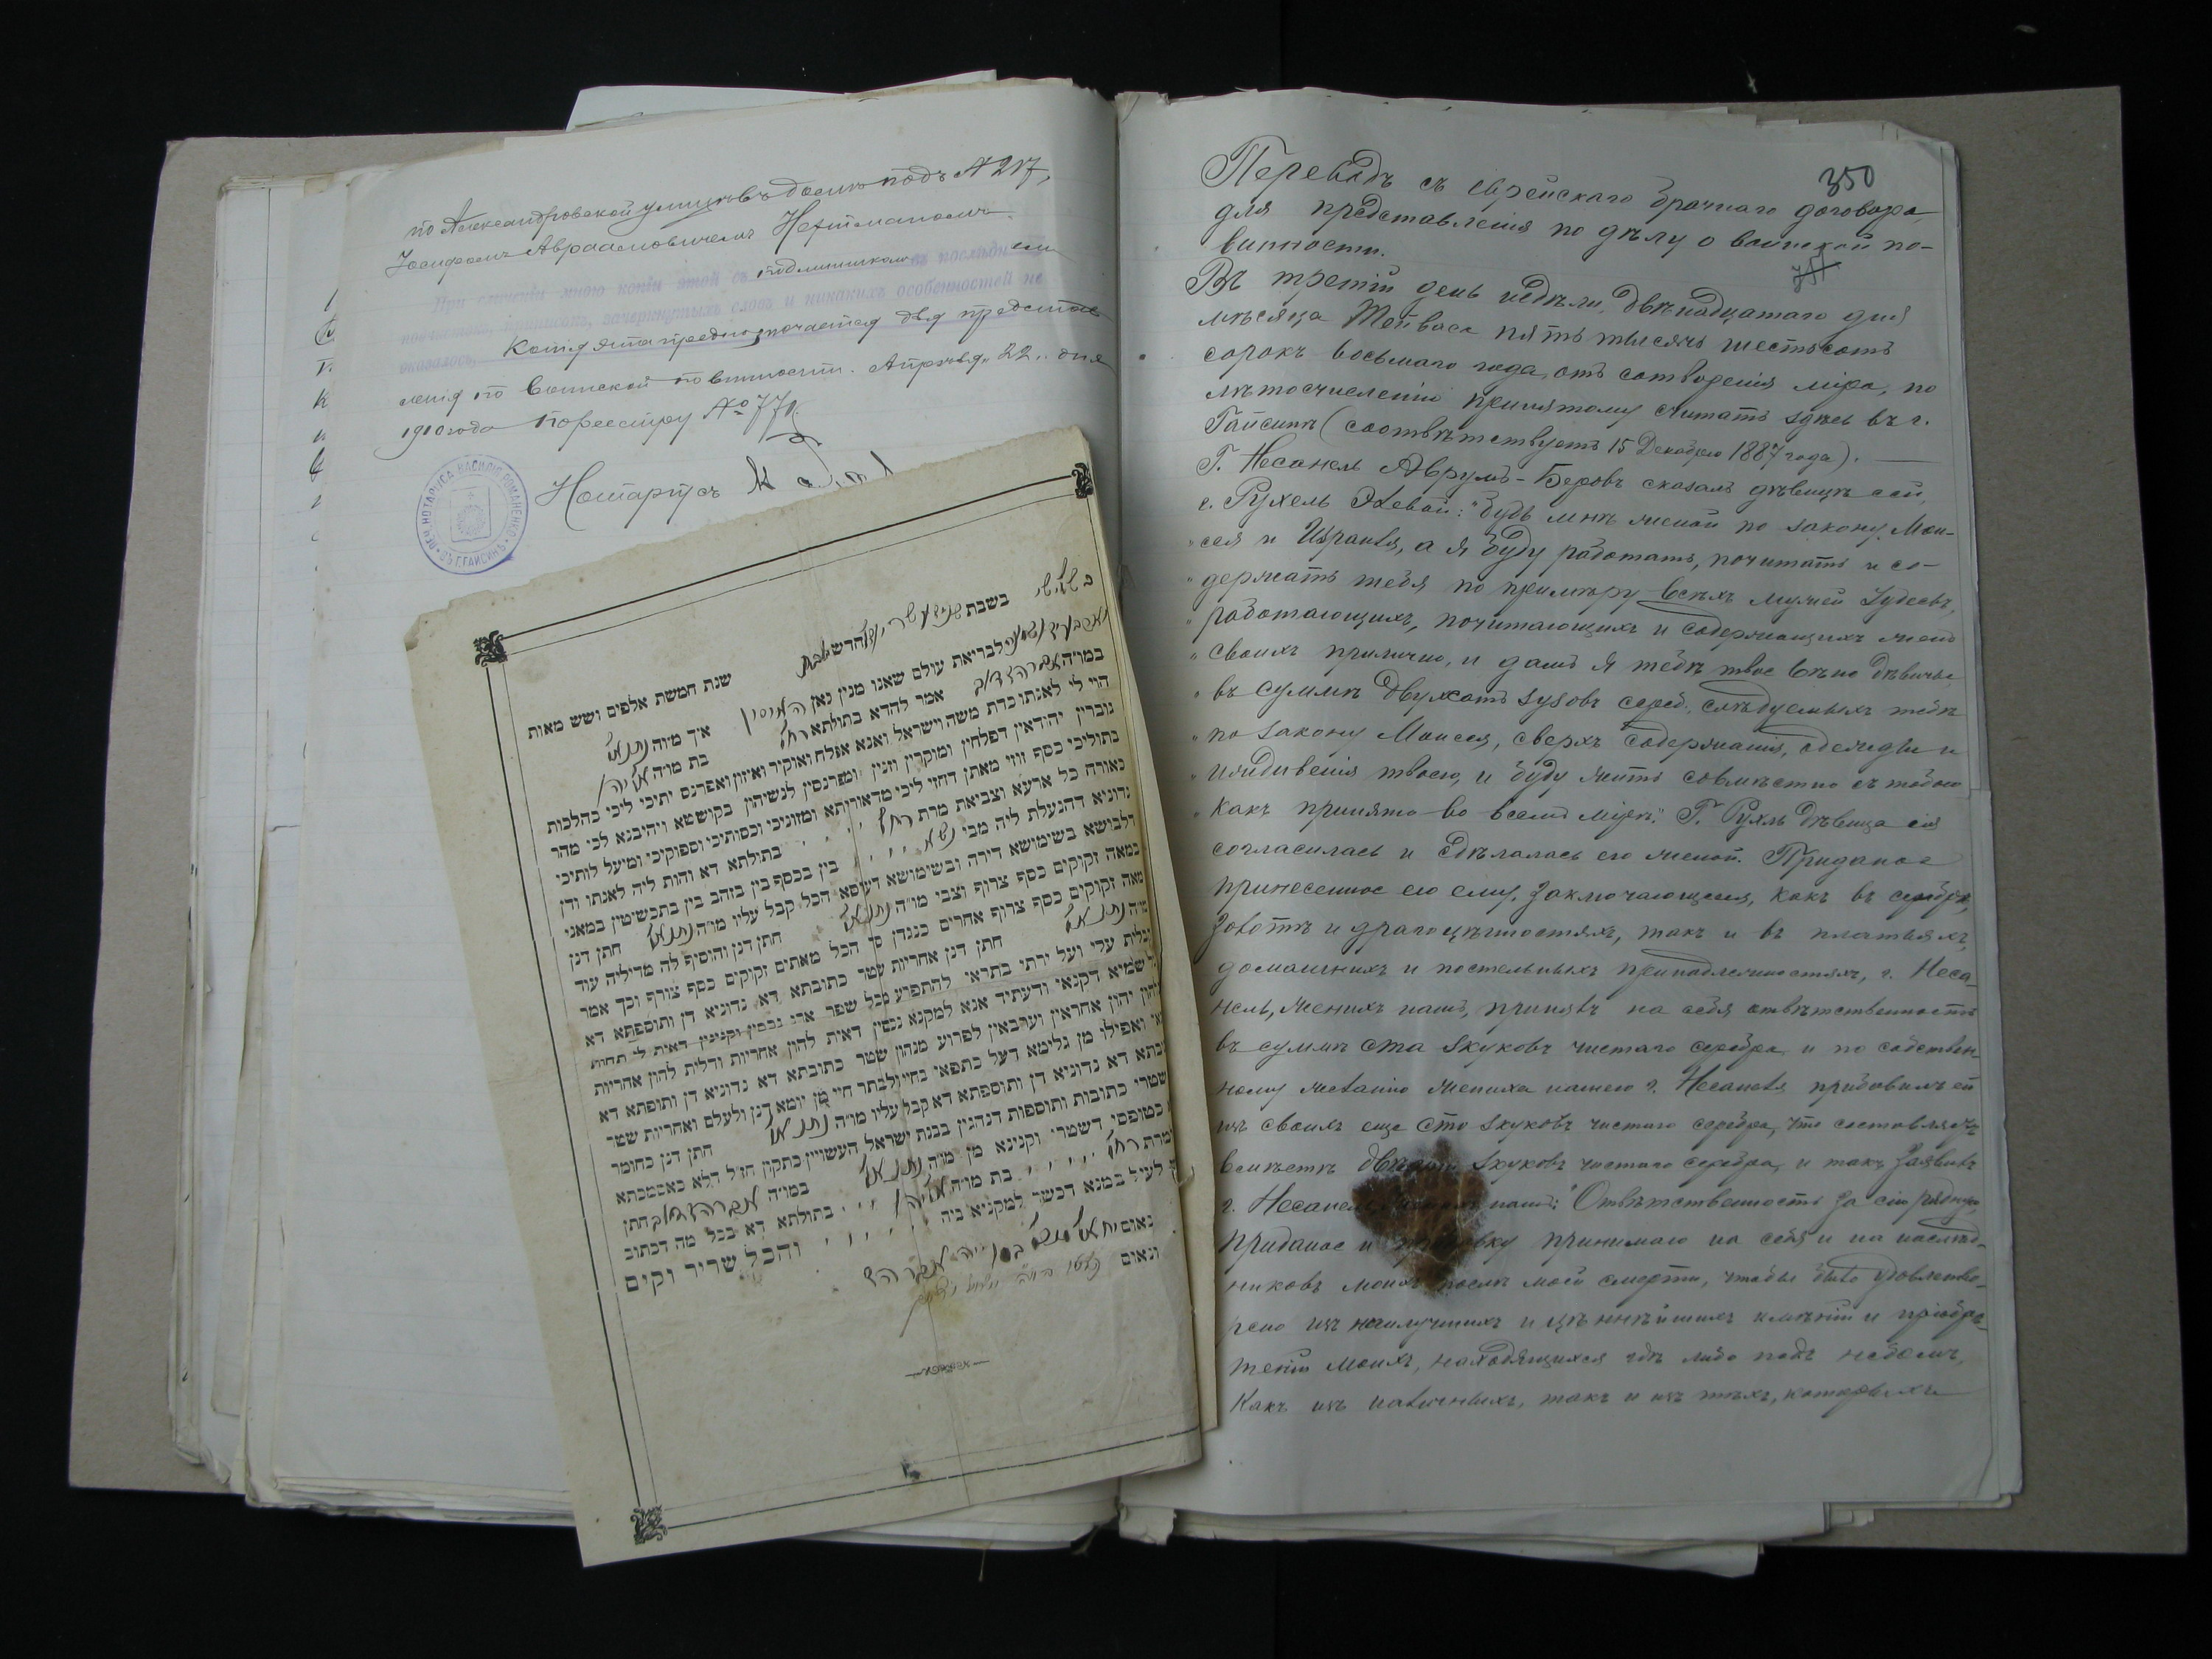 по Александровской улицѣ въ домѣ подъ № 217,
Іосифомъ Авраамовичемъ Нехтманомъ.
При сличеніи мною копіи этой съ подлинникомъ въ послѣднемъ
подчистокъ, приписокъ, зачеркнутыхъ словъ и никакихъ особенностей не
оказалось.
Копія эта предназначается для представ
ленія по воинской повинности. Апрѣля 22 дня
1910 года по реестру №
Нотаріусъ
ПЕЧ. НОТАРІУСА ВАСИЛІЯ РОМАНЕНКО ВЪ Г. ГАЙСИНѢ
בשלישי בשבת שנים עשר יום לחדש טבת
שנת חמשת אלפים ושש מאות
וארבעים ושמונה לבריאת עולם שאנו מנין כאן
איך מו״ה נתנאל
במו״ה אברהם דוב אמר להדא בתולתא רחל
בת מו״ה
הוי לי לאנתו כדת משה וישראל ואנא אפלח ואוקיר ואיזון ואפרנס יתיכי ליכי כהלכות
גוברין יהודאין דפלחין ומוקרין וזנין ומפרנסין לנשיהון בקושטא ויהיבנא לכי מהר
בתוליכי כסף זוזי מאתן דחזי ליכי מדאורייתא ומזוניכי וכסותיכי וספוקיכי ומיעל לותיכי
כאורח כל ארעא וצביאת מרת רחל בתולתא דא והות ליה לאנתו ודן
נדוניא דהנעלת ליה מבי נשא בין בכסף בין בזהב בין בתכשיטין במאני
דלבושא בשימושא דירה ובשימושא דערסא הכל קבל עליו מו״ה נתנאל חתן דנן
במאה זקוקים כסף צרוף וצבי מו״ה נתנאל חתן דנן והוסיף לה מדיליה עוד
מאה זקוקים כסף צרוף אחרים כנגדן סך הכל מאתים זקוקים כסף צורף וכך אמר
מו״ה נתנאל חתן דנן אחריות שטר כתובתא דא נדוניא דן ותוספתא דא
קבלית עלי ועל ירתי בתראי להתפרע מכל שפר ארג נכסין וקנינין דאית לי תחות
כל שמיא דקנאי ודעתיד אנא למקנא נכסין דאית להון אחריות ודלית להון אחריות
כלהון יהון אחראין וערבאין לפרוע מנהון שטר כתובתא דא נדוניא דן ותוספתא דא
מנאי ואפילו מן גלימא דעל כתפאי בחיי ולבתר חיי מן יומא דנן ולעלם ואחריות שטר
כתובתא דא נדוניא דן ותוספתא דא קבל עליו מו״ה נתנאל חתן דנן כחומר
שטרי כתובות ותוספות דנהגין בבנת ישראל העשויין כתקון חז״ל דלא כאסמכתא
ודלא כטופסי דשטרי וקנינא מן מו״ה נתנאל במו״ה אברהם דוב חתן
למרת רחל בת מו״ה בתולתא דא בכל מה דכתוב
לעיל במנא דכשר למקניא ביה והכל שריר וקים
נאום
ונאום
350
Переводъ съ еврейскаго брачнаго договора
для представленія по дѣлу о воинской по-
винности.
Въ третій день недѣли, двѣнадцатаго дня
мѣсяца Тейваса пять тысячъ шестьсотъ
сорокъ восьмаго года, отъ сотворенія міра, по
лѣтосчисленію принятому считать здѣсь въ г.
Гайсинѣ (соотвѣтствуетъ 15 Декабря 1887 года).
Г. Несанель Аврумъ-Беровъ сказалъ дѣвицѣ сей,
г. Рухель Левой: "Будь мнѣ женой по закону Мои-
"сея и Израиля, а я буду работать, почитать и со-
"держать тебя по примѣру всѣхъ мужей Іудеевъ,
"работающихъ, почитающихъ и содержащихъ женъ
"своихъ прилично, и дамъ я тебѣ твое вѣно дѣвичье
"въ суммѣ двухсотъ зузовъ сереб., слѣдуемыхъ тебѣ
"по закону Моисея, сверхъ содержанія, одежды и
"иждивенія твоего, и буду жить совмѣстно съ тобою
"какъ принято во всемъ мірѣ." Г. Рухль дѣвица сія
согласилась и сдѣлалась его женой. Приданое
принесенное ею ему, заключающееся, какъ въ серебрѣ,
золотѣ и драгоцѣнностяхъ, такъ и въ платьяхъ,
домашнихъ и постельныхъ принадлежностяхъ, г. Неса-
нель, женихъ нашъ, принялъ на себя отвѣтственность
въ суммѣ ста зкуковъ чистаго серебра и по собствен-
ному желанію жениха нашего г. Несанеля, прибавилъ ей
изъ своихъ еще сто зкуковъ чистаго серебра, что составляетъ
вмѣстѣ двѣсти зкуковъ чистаго серебра, и такъ заявилъ
г. Несанель женихъ нашъ: "Отвѣтственность за сію рядную,
приданое и прибавку принимаю на себя и на наслѣд-
никовъ моихъ послѣ моей смерти, чтобы было удовлетво-
рено изъ наилучшихъ и цѣннѣйшихъ имѣній и пріобрѣ-
теній моихъ, находящихся гдѣ либо подъ небомъ,
какъ изъ наличныхъ, такъ и изъ тѣхъ, которыхъ